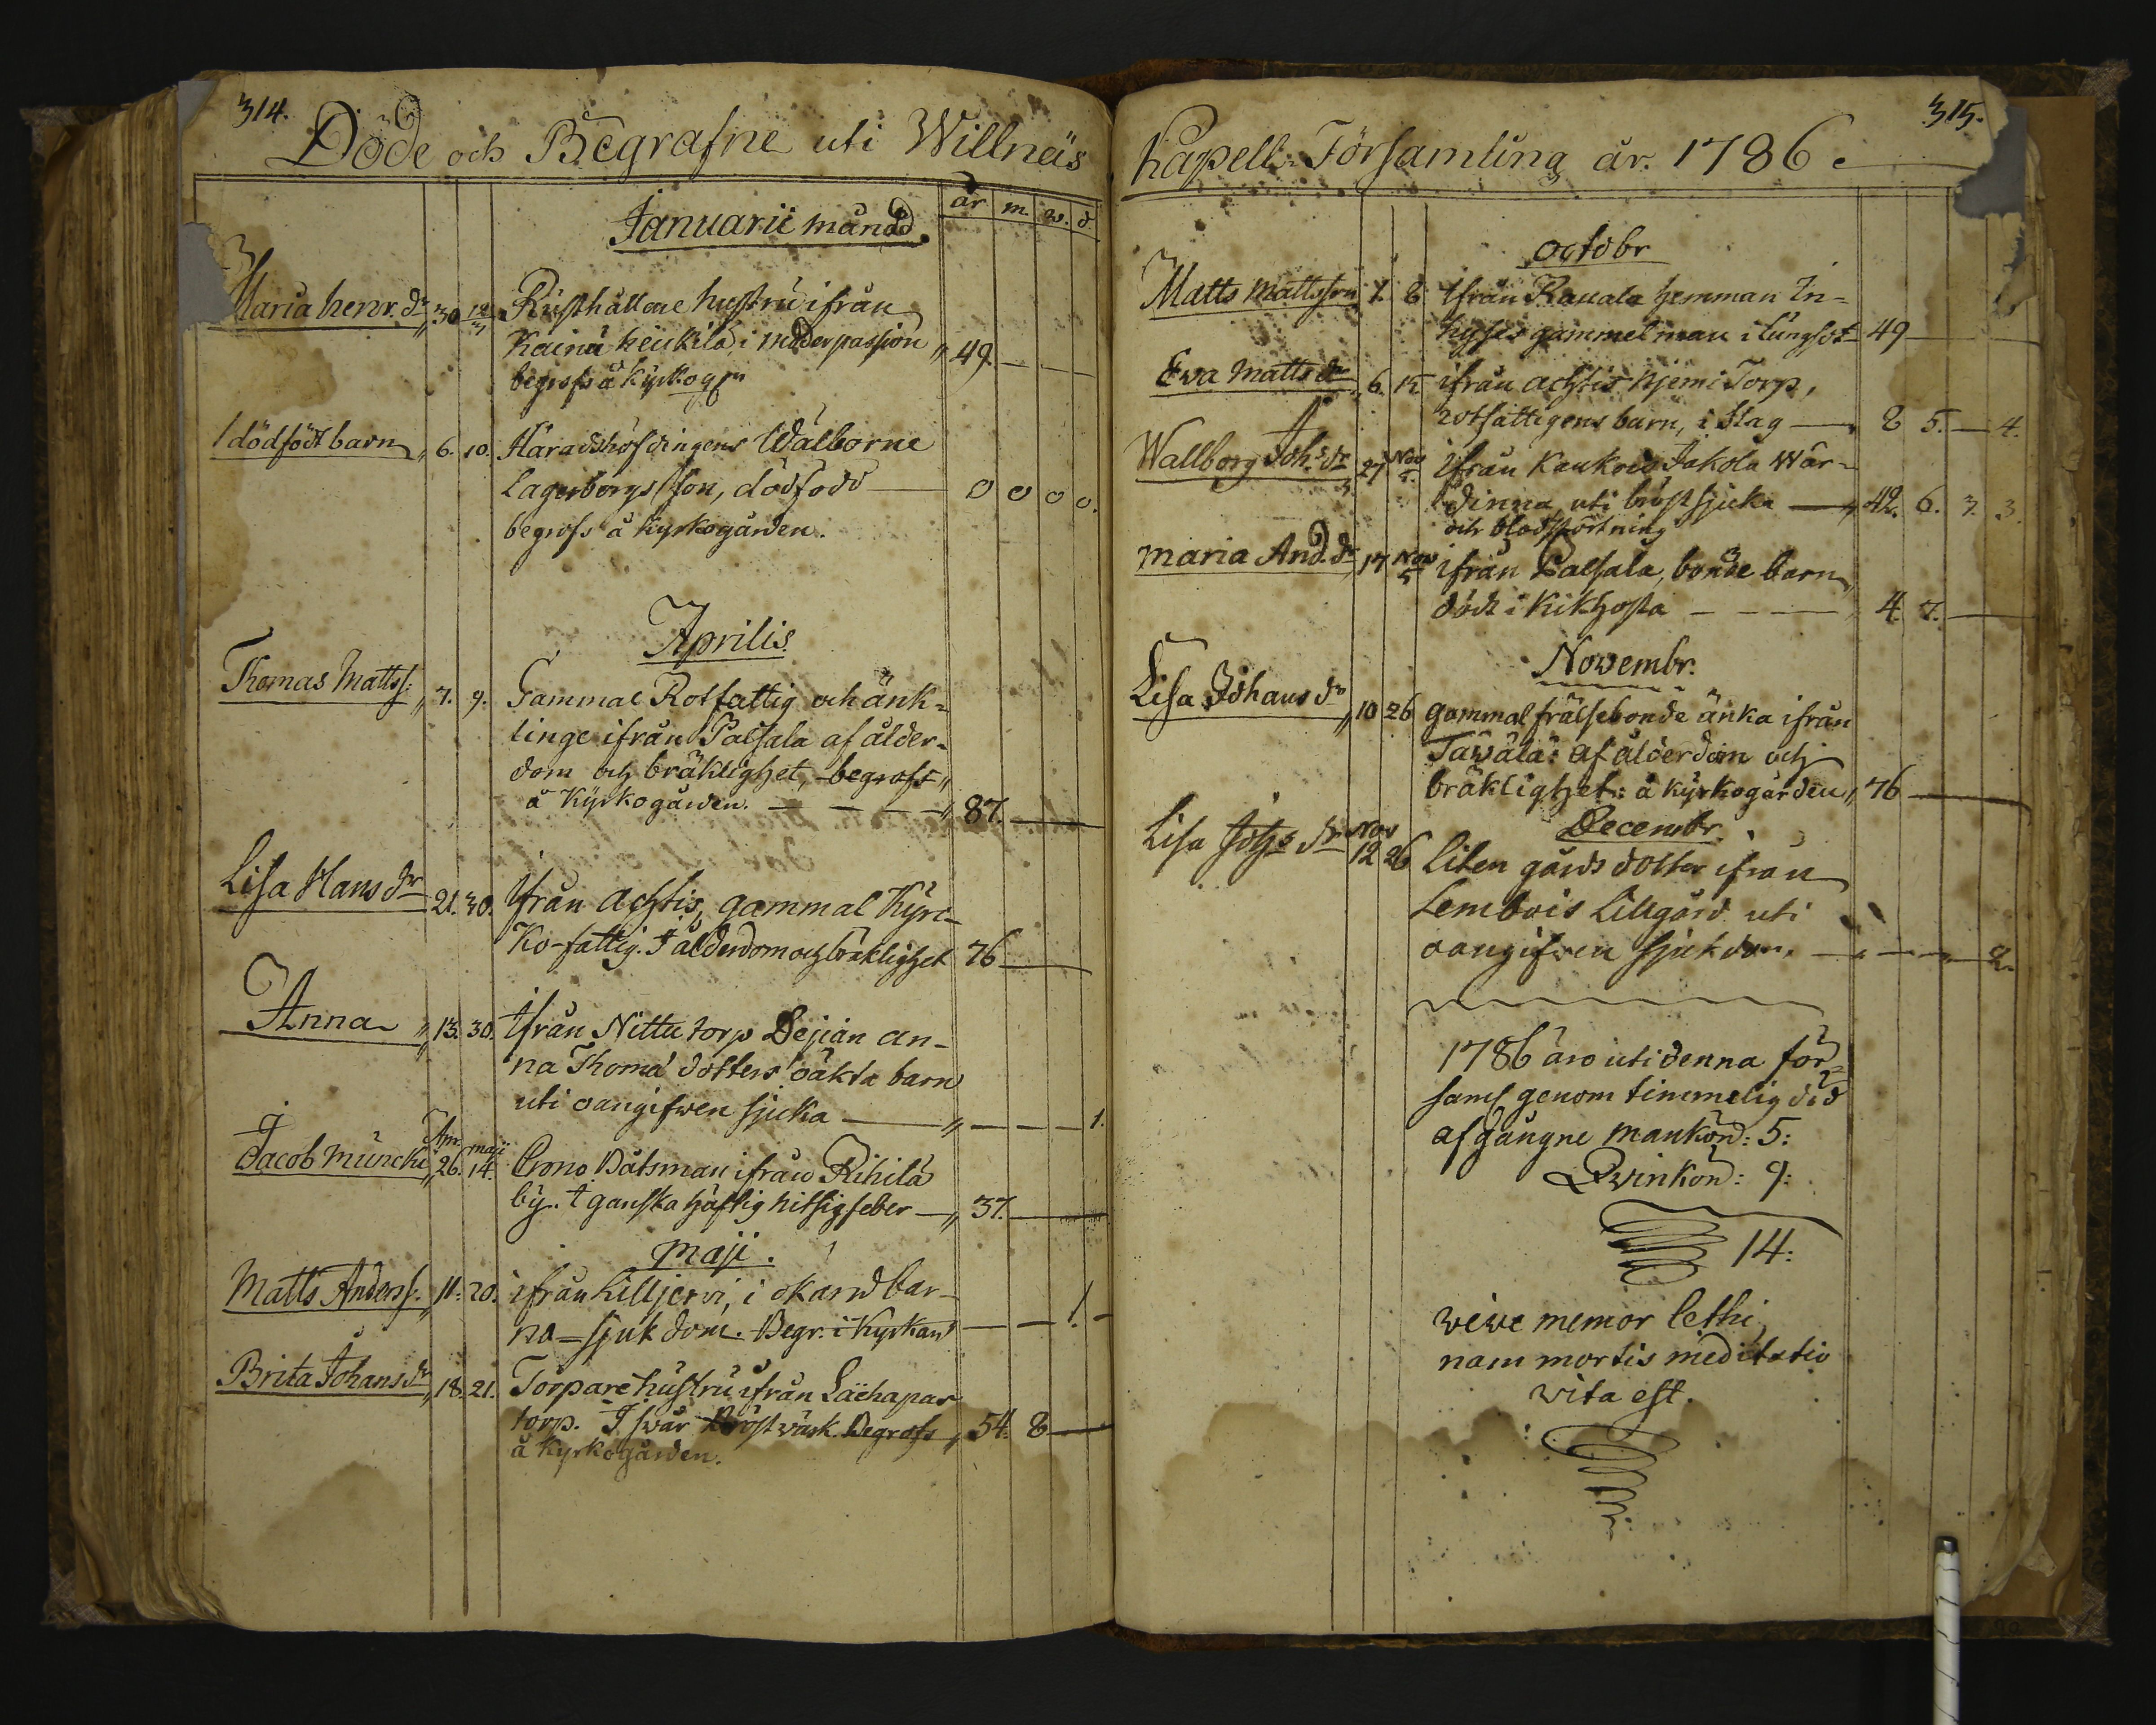 314.
Döde och Begrafne uti Willnäs
Januarii månad.
år m. w. d.
Maria henr. dr 30 12/3 Rusthållare hustru ifrån
Kaina heikilä i moderpassion 49. — —
begrofs å kyrkog
1 dödfödt barn 6. 10. Häradshöfdingens Wälborne
Lagerborgs son, dödfödd — 0 0 0 0.
begrofs å kyrkogården.
Aprilis.
Thomas Mattss: 7. 9. Gammal Rotfattig och änk-
linge ifrån Palsala af ålder-
dom och bräklighet, begroft
å Kyrkogården. — — — 87. —
Lisa Hans dr 21. 30. Ifrån Achtis, gammal Kyrc-
ko-fattig. I ålderdom och bräklighet 76 —
Anna 13. 30. Ifrån Nittu torp Dejian an-
na Thomæ dotters oäkta barn
uti oangifwen sjuka — — — — 1.
Apr. maji
Jacob Muncke 26. 14. Crono Båtsman ifrån Rihilä
by. t ganska häftig hitsig feber — 37. —
Maji.
Matts Anderss. 11. 20. ifrån Lilljerwi, i okand bar-
na-sjukdom. Begr. i Kyrkan — — 1. -
Brita Johans dr 18. 21. Torpare hustru ifrån Laehapar
torp. I swår Bröstwärk. Begrofs 54. 8 —
å Kyrkogården.
315.
Kapell-Församling år. 1786.
octobr
Matts Mattsson 1. 8 ifrån Rauala hemman In-
hyses gammel man i lungsot 49 —
Ewa Matts dr 6. 15 ifrån achtis hjemi Torp,
rotfattigens barn, i slag — 8 5. — 4.
Wallborg Joh:s dr 27 Nov 5. ifrån Kaukois Jakola Wär-
dinna, uti bröstsjuka — 42. 6. 3. 3.
och blodstörtning
Maria And. dr 17 Nov 5 ifrån Palsala, bonde barn
dödt i Kikhosta — — — 4. 7. —
Novembr.
Lisa Johans dr 10 26 gammal frälsebonde änka ifrån
Tawäla: af ålderdom och
bräklighet: å kyrkogården 76 —
Decembr.
Lisa Joh:s dr Nov 12 26 Liten gårds dotter ifrån
Lembois Lillgård uti
oangifwen sjukdom. — — — 2.
1786 äro uti denna för-
saml genom timmelig död
afgångne mankön: 5:
Qwinkön: 9:
14:
wive memor lethi,
nam mortis meditatio
wita est.